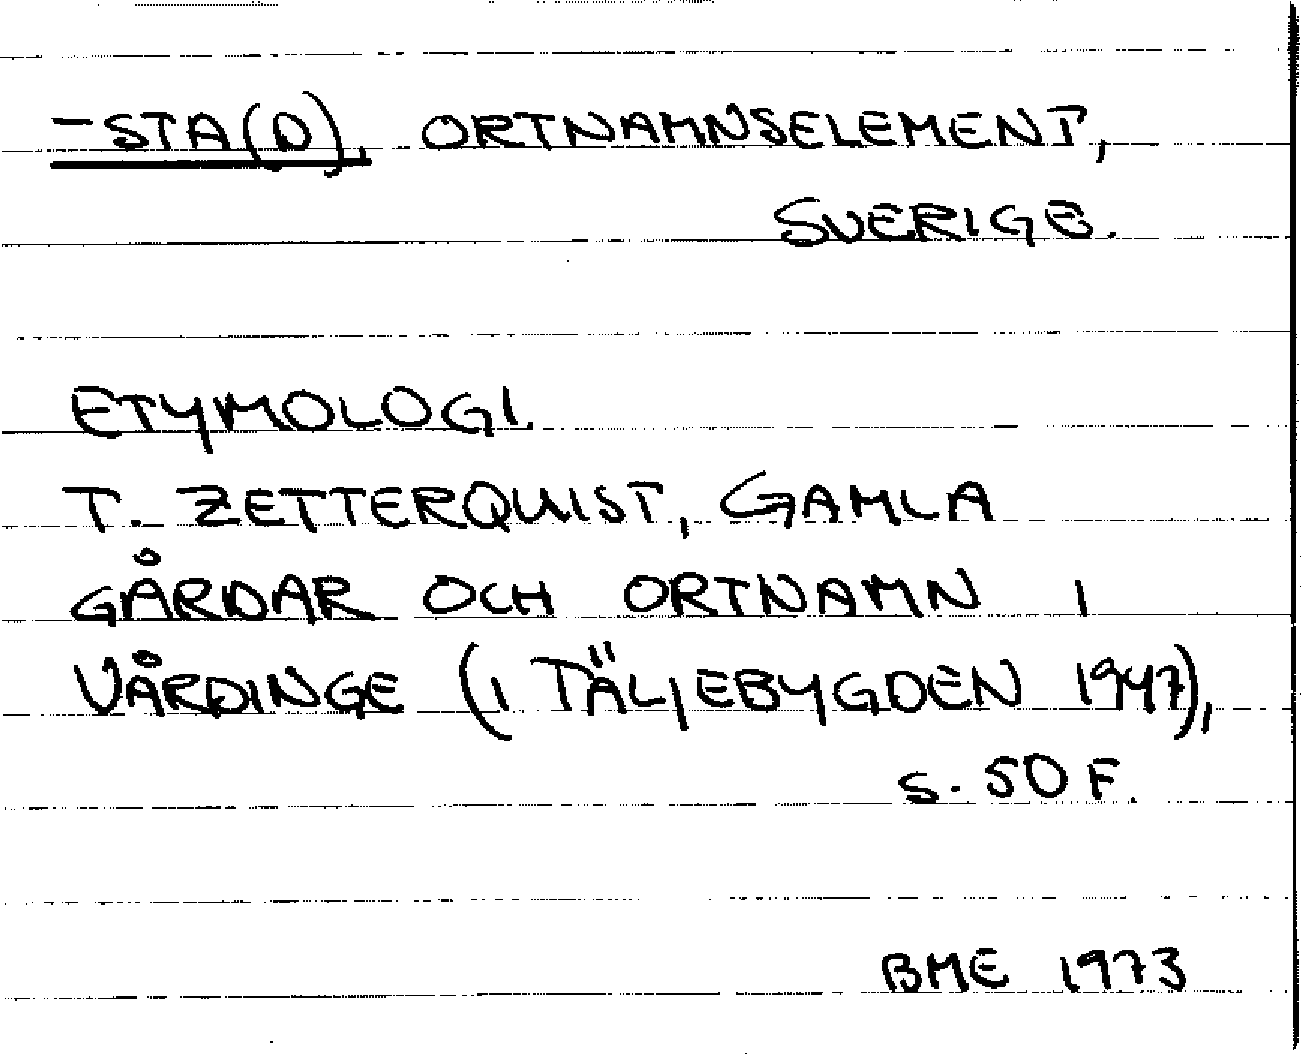 -STA(D), ORTNAMNSELEMENT,
SVERIGE.
ETYMOLOGI.
T. ZETTERQUIST, GAMLA
GÅRDAR OCH ORTNAMN I
VÅRDINGE (I TÄLJEBYGDEN 1947),
S. 50 F.
BME 1973